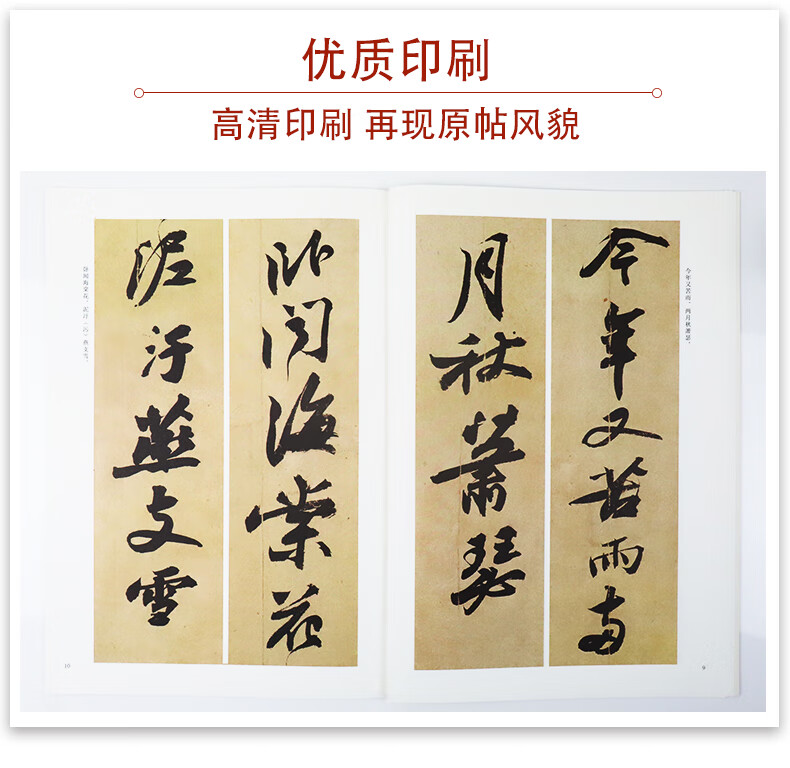 优质印刷
高清印刷 再现原帖风貌
今年又苦雨、两月秋萧瑟、
今年又苦雨两
月秋萧瑟
卧闻海棠花
泥汙燕支雪
卧闻海棠花、泥汙（污）燕支雪。
9
10